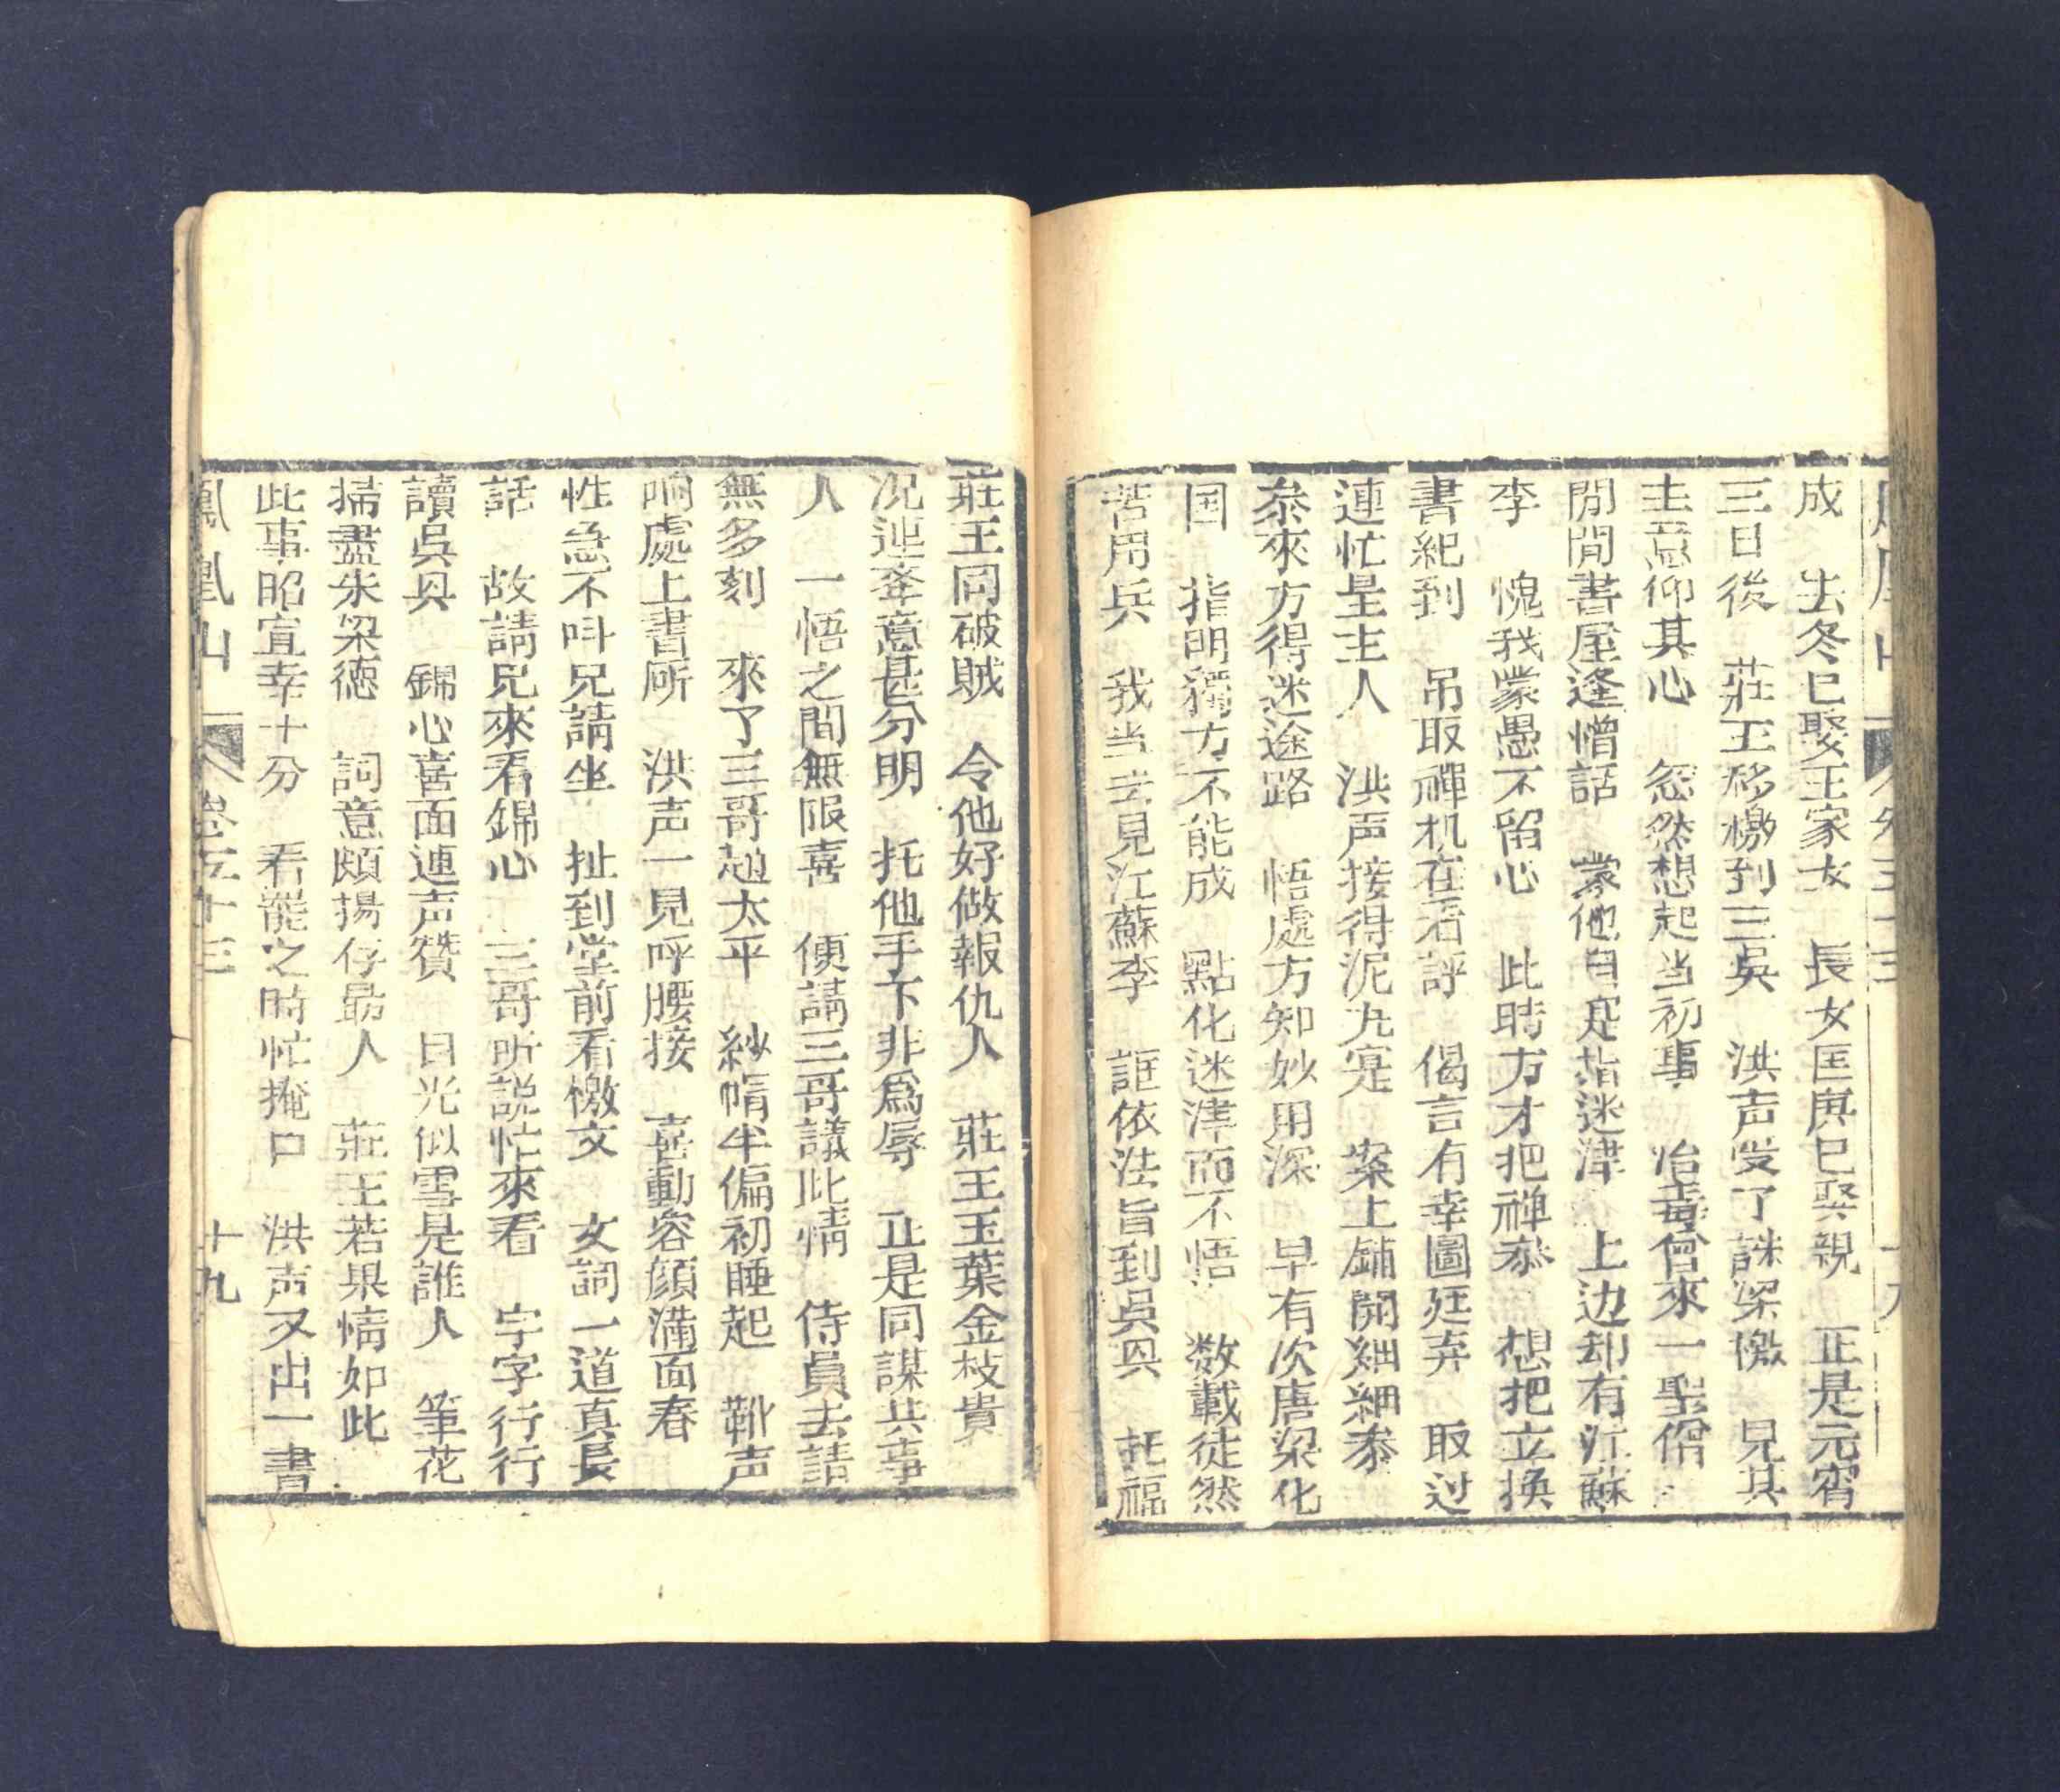 成　去冬已娶王家女　長女匡庚已娶親　正是元宵
三日後　莊王移檄到三吳　洪声受了誅梁檄　見其
主意仰其心　忽然想起当初事　冶毒曾來一聖僧
閒閒書屋逢僧話　蒙他自是指迷津　上边却有江蘇
李　愧我蒙愚不留心　此時方才把禅恭　想把立换
書紀到　吊取禪机在看評　偈言有幸圖廷弃　取过
連忙呈主人　洪声接得泥九寔　案上鋪開細細泰
恭來方得迷途路　悟處方知妙用深　早有次唐梁化
国　指明獨方不能成　點化迷津而不悟　数載徒然
苦用兵　我当去見江蘇李　誑依法旨到吳　托福
莊王同破賊　令他好做報仇人　莊王玉葉金枝貴
况迚牽意甚分明　托他手下非爲辱　正是同謀共事
人　一悟之間無限喜　便請三哥議此情　侍員去請
無多刻　來了三哥趙太平　紗帽半偏初睡起　靴声
响處上書所　洪声一見呼腰接　喜動容顔满面春
性急不呌兄請坐　扯到堂前看檄文　女詞一道真長
話　故請兄來看錦心　三哥所説忙來看　字字行行
讀吳　錦心喜面連声贊　日光似雪是誰人　筆花
掃盡朱梁德　詞意頗揚存昴人　莊王若果情如此
此事昭宣幸十分　看罷之時忙掩口　洪声又出一書
鳳凰山　卷五十三　十九